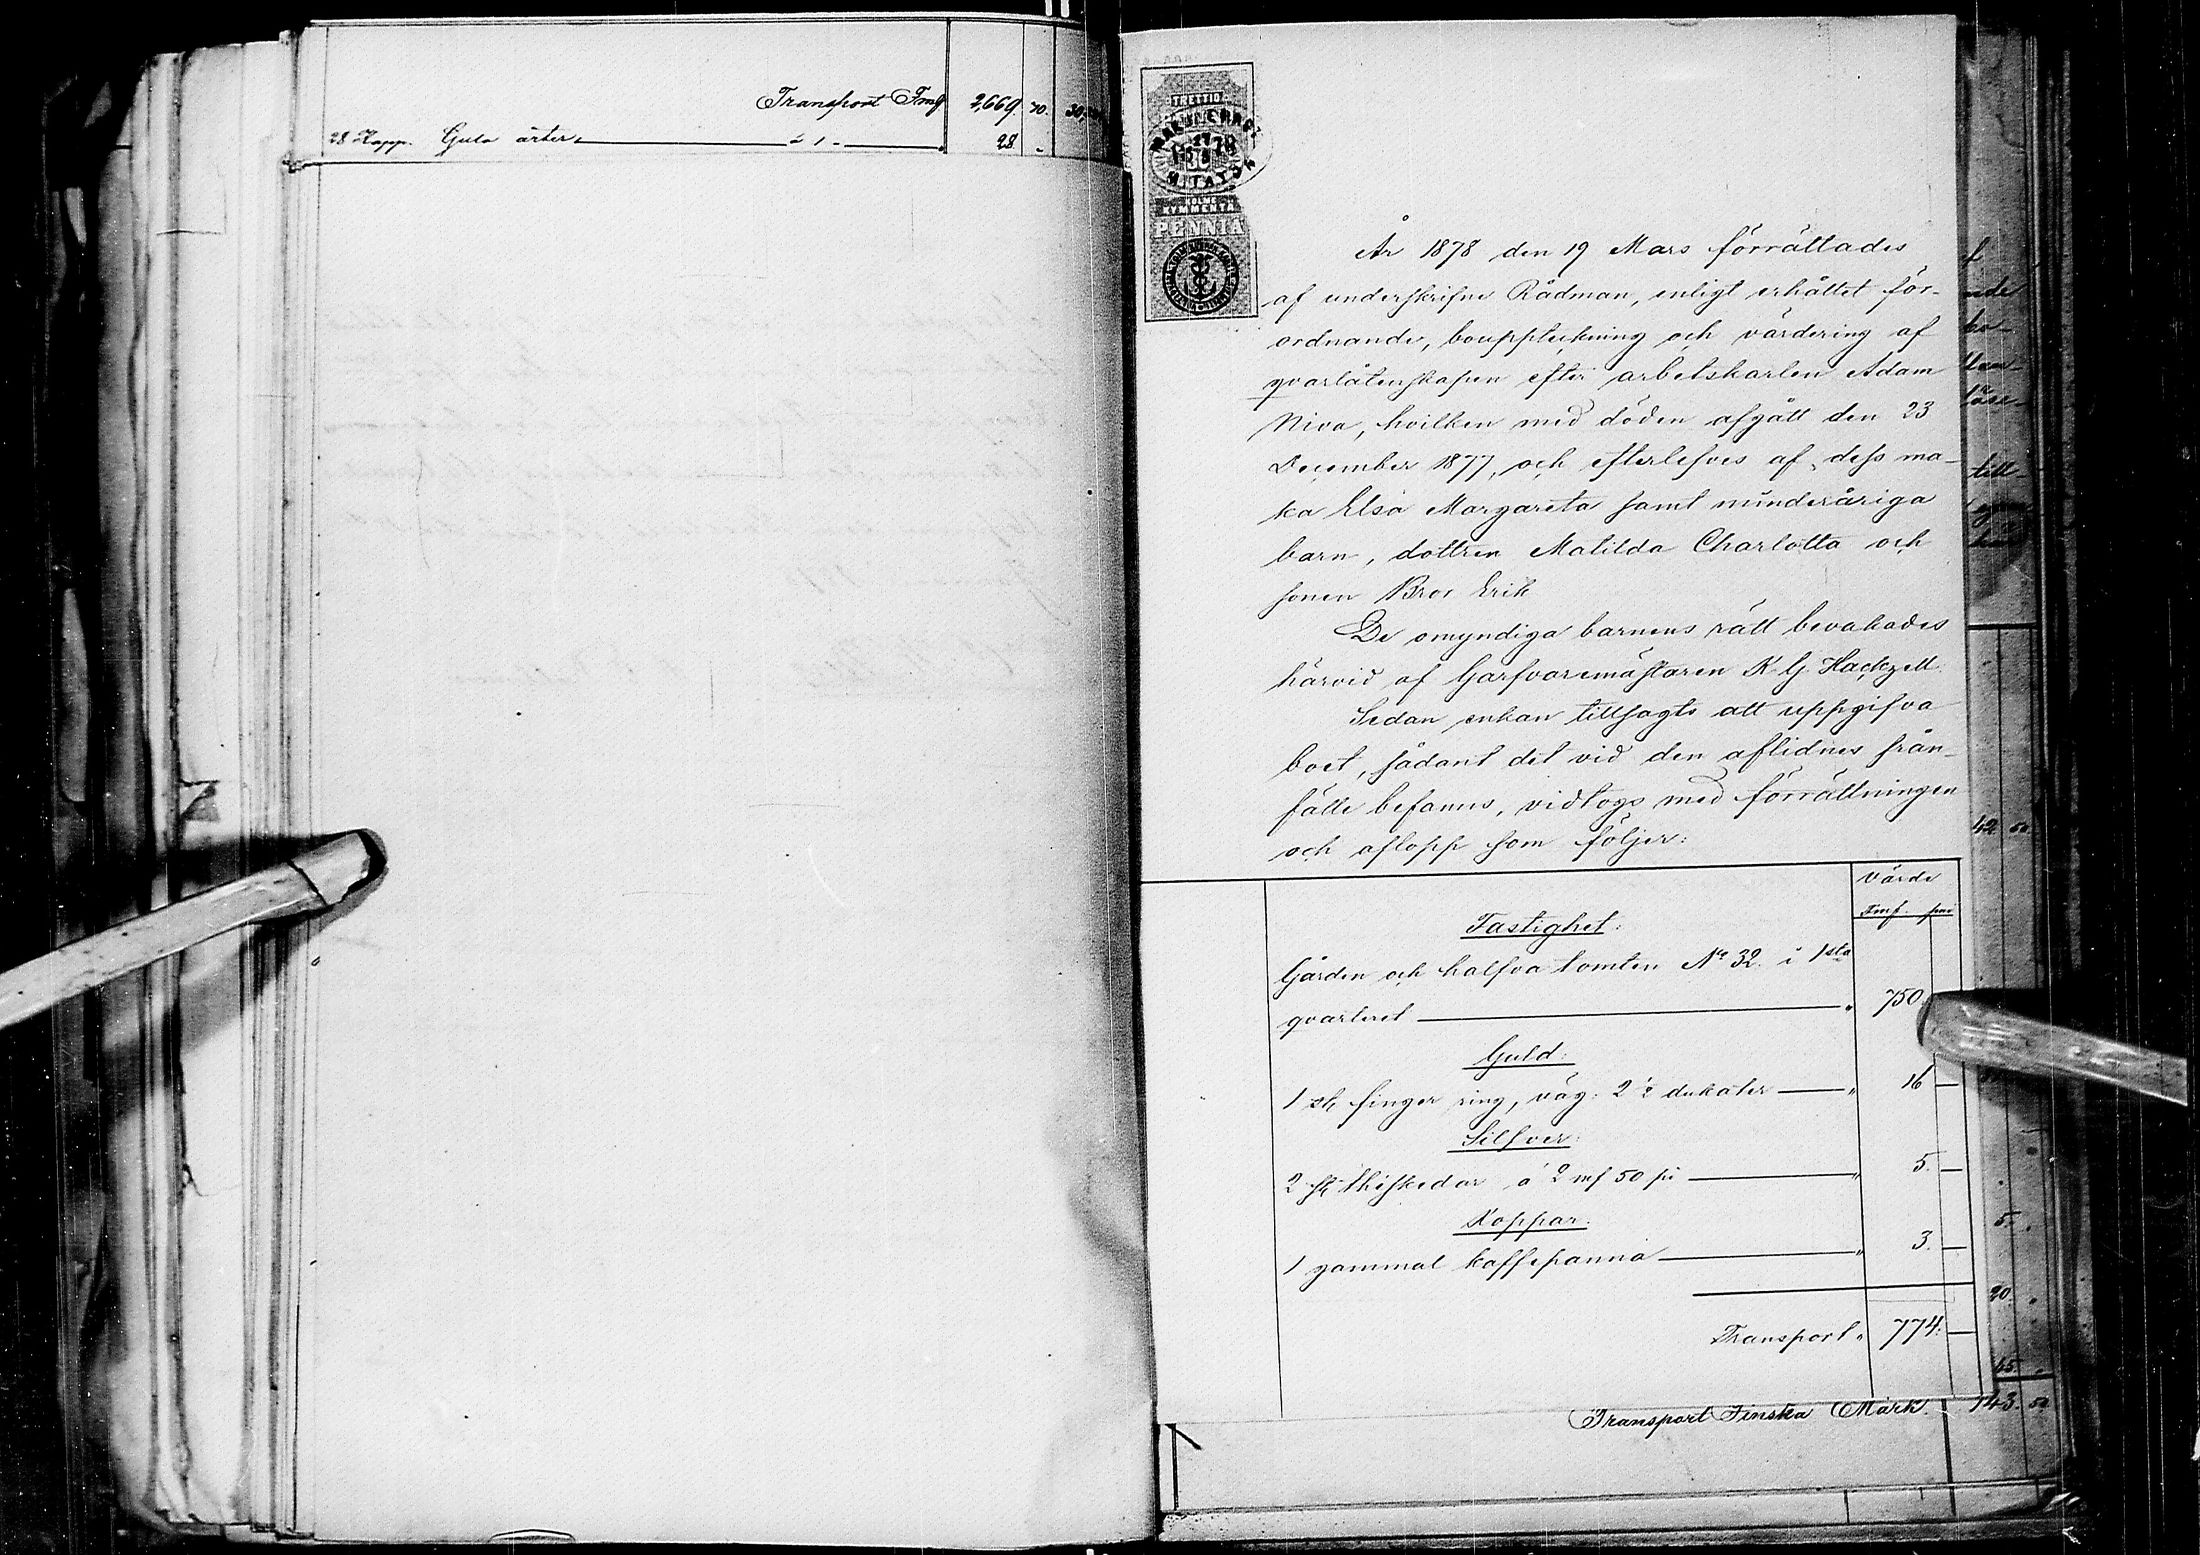 Transport Fmg 2,669. 70.
28 Kapp. Gula ärter à 1 - 28 -
TRETTIO
KOLME
KYMMENTÄ
PENNIÄ
År 1878 den 19 Mars förrättades
af underskrifne Rådman, enligt erhållet för-
ordnande, bouppteckning och värdering af
qvarlåtenskapen efter arbetskarlen Adam
Niva, hvilken med döden afgått den 23
December 1877, och efterlefves af dess ma-
ka Elsa Margareta samt minderåriga
barn, dottren Matilda Charlotta och
sonen Bror Erik
De omyndiga barnens rätt bevakades
härvid af Garfvaremästaren K. G. Hackzell.
Sedan enkan tillsagts att uppgifva
boet, sådant det vid den aflidnes från-
fälle befanns, vidtogs med förrättningen
och aflopp som följer:
Värde
Fmk pni
Fastighet:
Gården och halfva tomten No 32. i 1sta
qvarteret " 750.
Guld:
1 st. finger ring, väg. 2 1/2 dukater " 16 —
Silfver:
2 st. theskedar á 2 mk 50 pi " 5. —
Koppar:
1 gammal kaffepanna " 3. —
Transport " 774. —
Transport Finska Mark. 743. 50